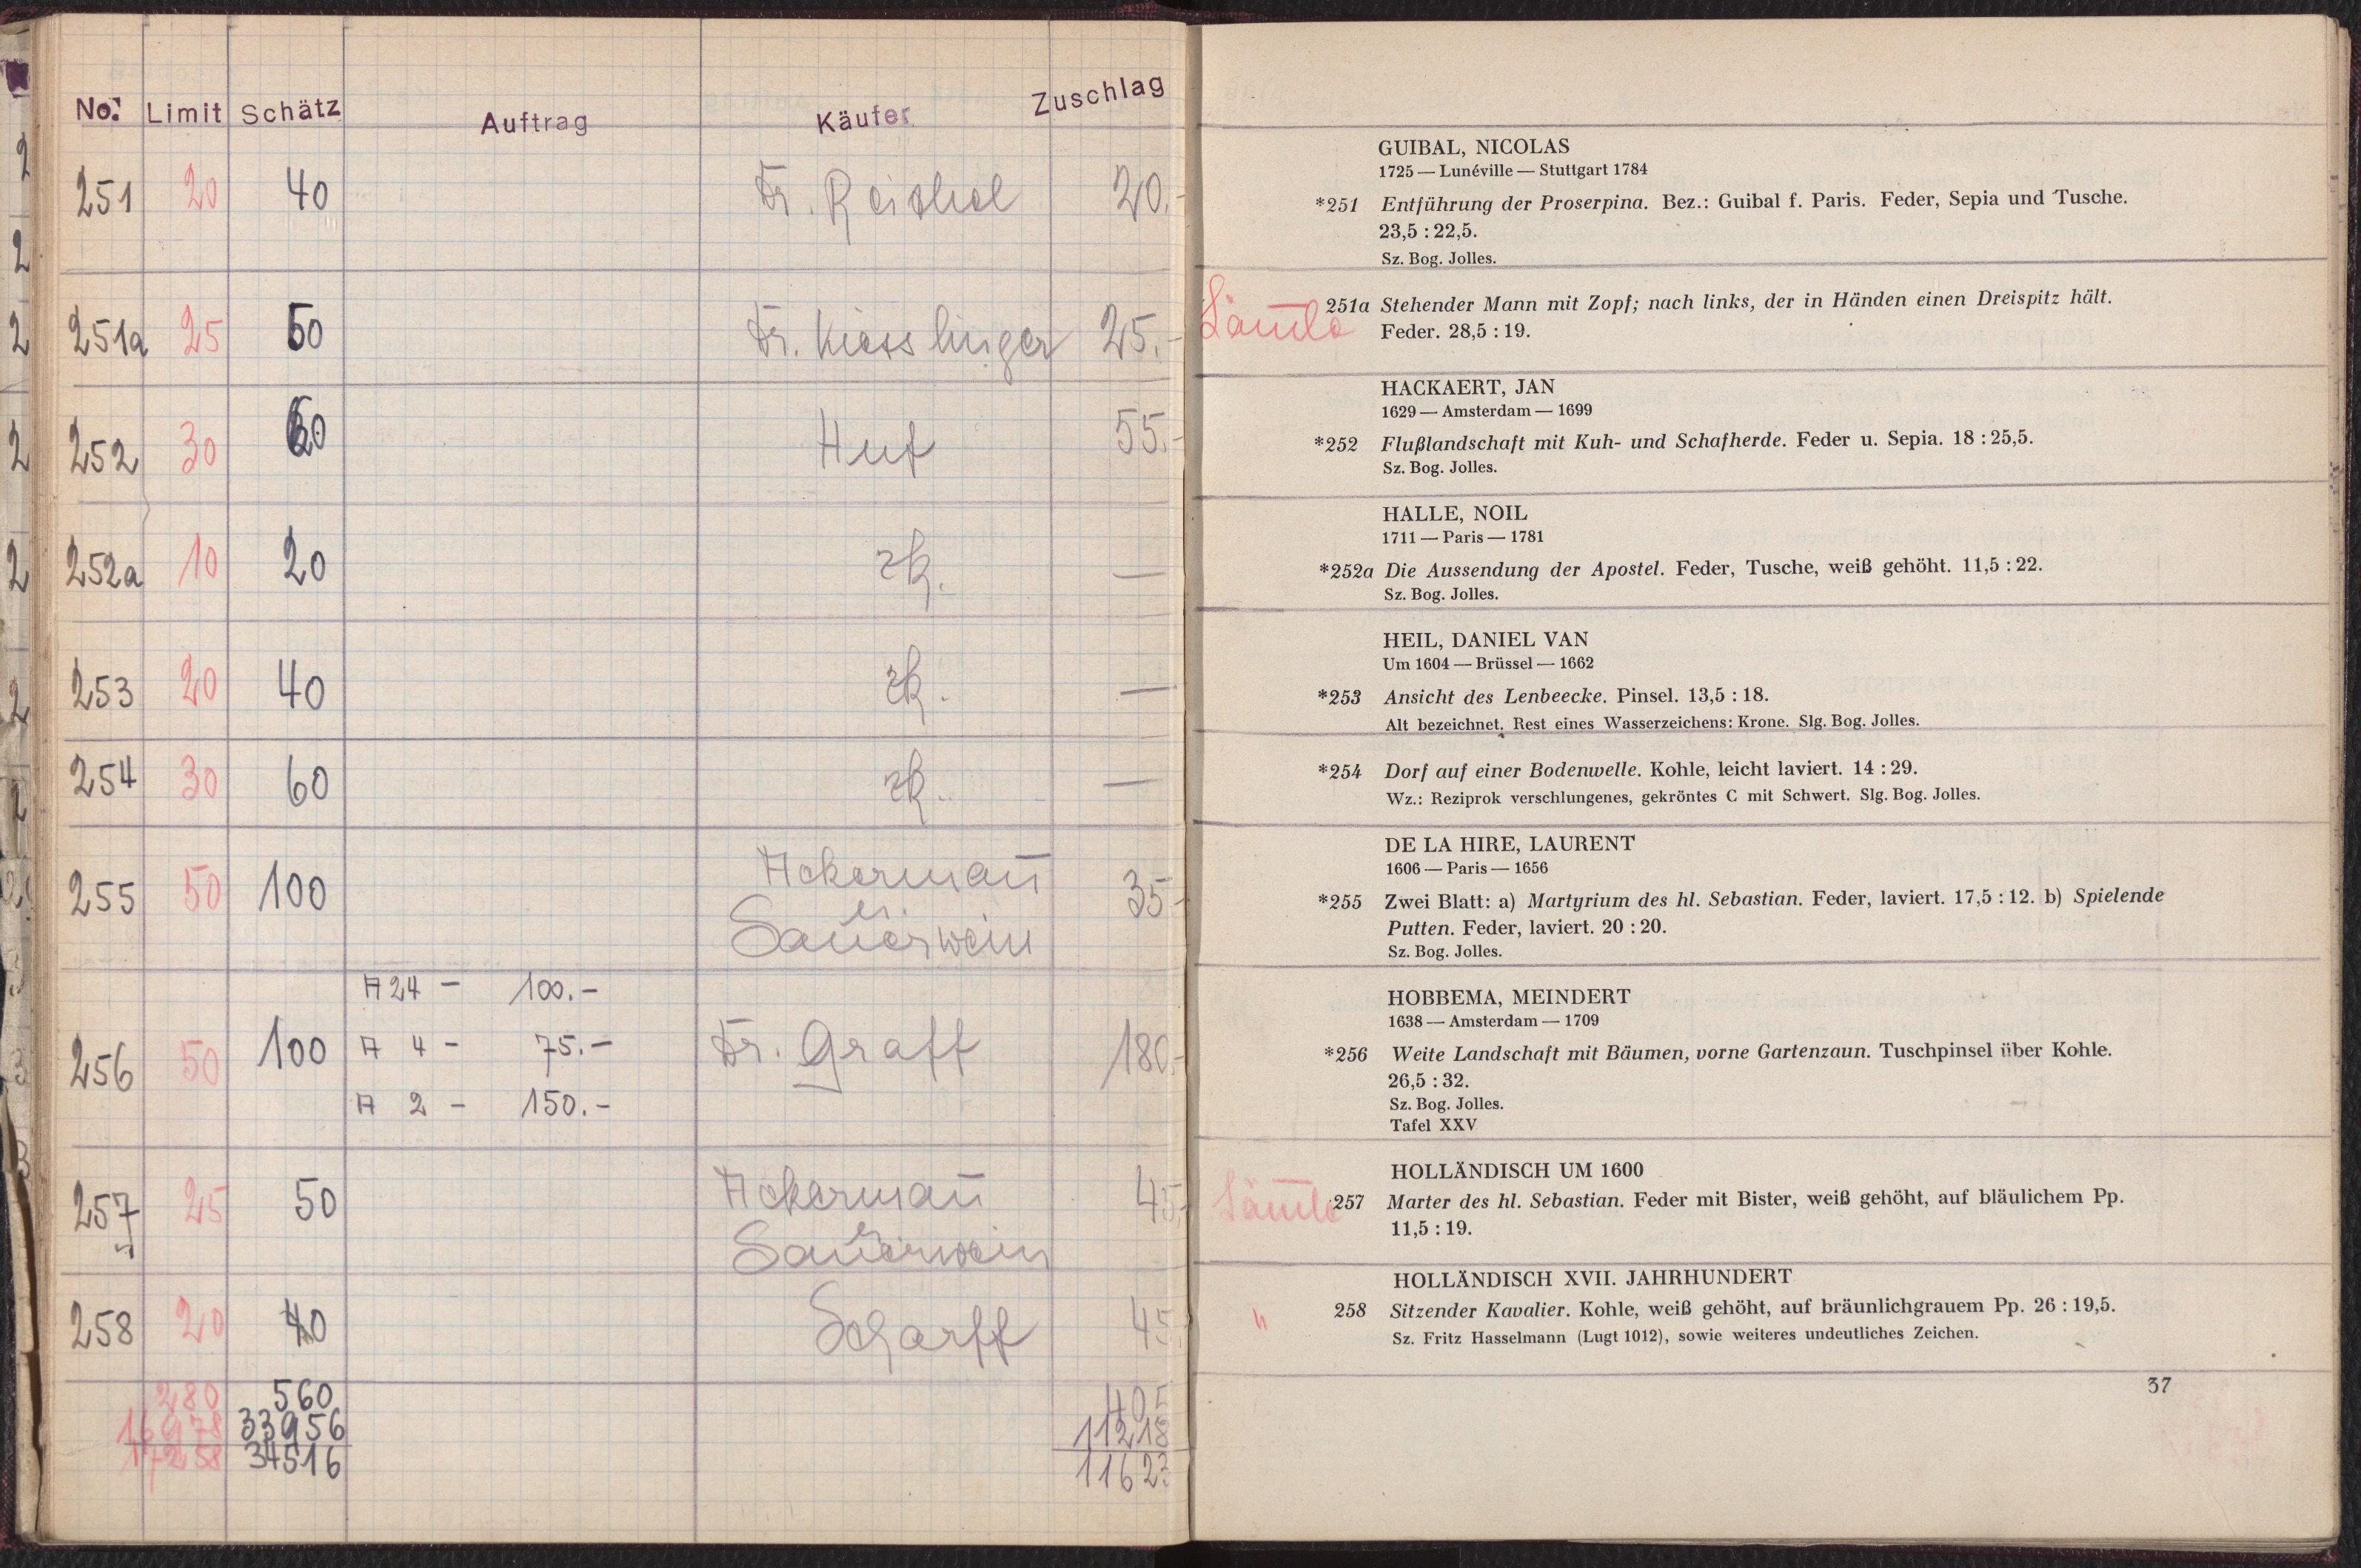 No. Limit Schätz Auftrag Käufer Zuschlag
251 20 40 Dr. Reichel 20.-
251a 25 50 Dr. Kiesslinger 25.-
252 30 60 Huf 55.-
252a 10 20 zk. —
253 20 40 zk. —
254 30 60 zk. —
255 50 100 Ackermañ u. Sauerwein 35.-
A 24 - 100.-
256 50 100 A 4 - 75.- Dr. Graff 180.-
A 2 - 150.-
257 25 50 Ackermañ u. Sauerwein 45.-
258 20 40 Scharff 45.
280 560 405
16978 33956 11218
17258 34516 11623
GUIBAL, NICOLAS
1725 — Lunéville — Stuttgart 1784
*251 Entführung der Proserpina. Bez.: Guibal f. Paris. Feder, Sepia und Tusche.
23,5 : 22,5.
Sz. Bog. Jolles.
251a Stehender Mann mit Zopf; nach links, der in Händen einen Dreispitz hält.
Feder. 28,5 : 19.
HACKAERT, JAN
1629 — Amsterdam — 1699
*252 Flußlandschaft mit Kuh- und Schafherde. Feder u. Sepia. 18 : 25,5.
Sz. Bog. Jolles.
HALLE, NOIL
1711 — Paris — 1781
*252a Die Aussendung der Apostel. Feder, Tusche, weiß gehöht. 11,5 : 22.
Sz. Bog. Jolles.
HEIL, DANIEL VAN
Um 1604 — Brüssel — 1662
*253 Ansicht des Lenbeecke. Pinsel. 13,5 : 18.
Alt bezeichnet. Rest eines Wasserzeichens: Krone. Slg. Bog. Jolles.
*254 Dorf auf einer Bodenwelle. Kohle, leicht laviert. 14 : 29.
Wz.: Reziprok verschlungenes, gekröntes C mit Schwert. Slg. Bog. Jolles.
DE LA HIRE, LAURENT
1606 — Paris — 1656
*255 Zwei Blatt: a) Martyrium des hl. Sebastian. Feder, laviert. 17,5 : 12. b) Spielende
Putten. Feder, laviert. 20 : 20.
Sz. Bog. Jolles.
HOBBEMA, MEINDERT
1638 — Amsterdam — 1709
*256 Weite Landschaft mit Bäumen, vorne Gartenzaun. Tuschpinsel über Kohle.
26,5 : 32.
Sz. Bog. Jolles.
Tafel XXV
HOLLÄNDISCH UM 1600
257 Marter des hl. Sebastian. Feder mit Bister, weiß gehöht, auf bläulichem Pp.
11,5 : 19.
HOLLÄNDISCH XVII. JAHRHUNDERT
" 258 Sitzender Kavalier. Kohle, weiß gehöht, auf bräunlichgrauem Pp. 26 : 19,5.
Sz. Fritz Hasselmann (Lugt 1012), sowie weiteres undeutliches Zeichen.
37